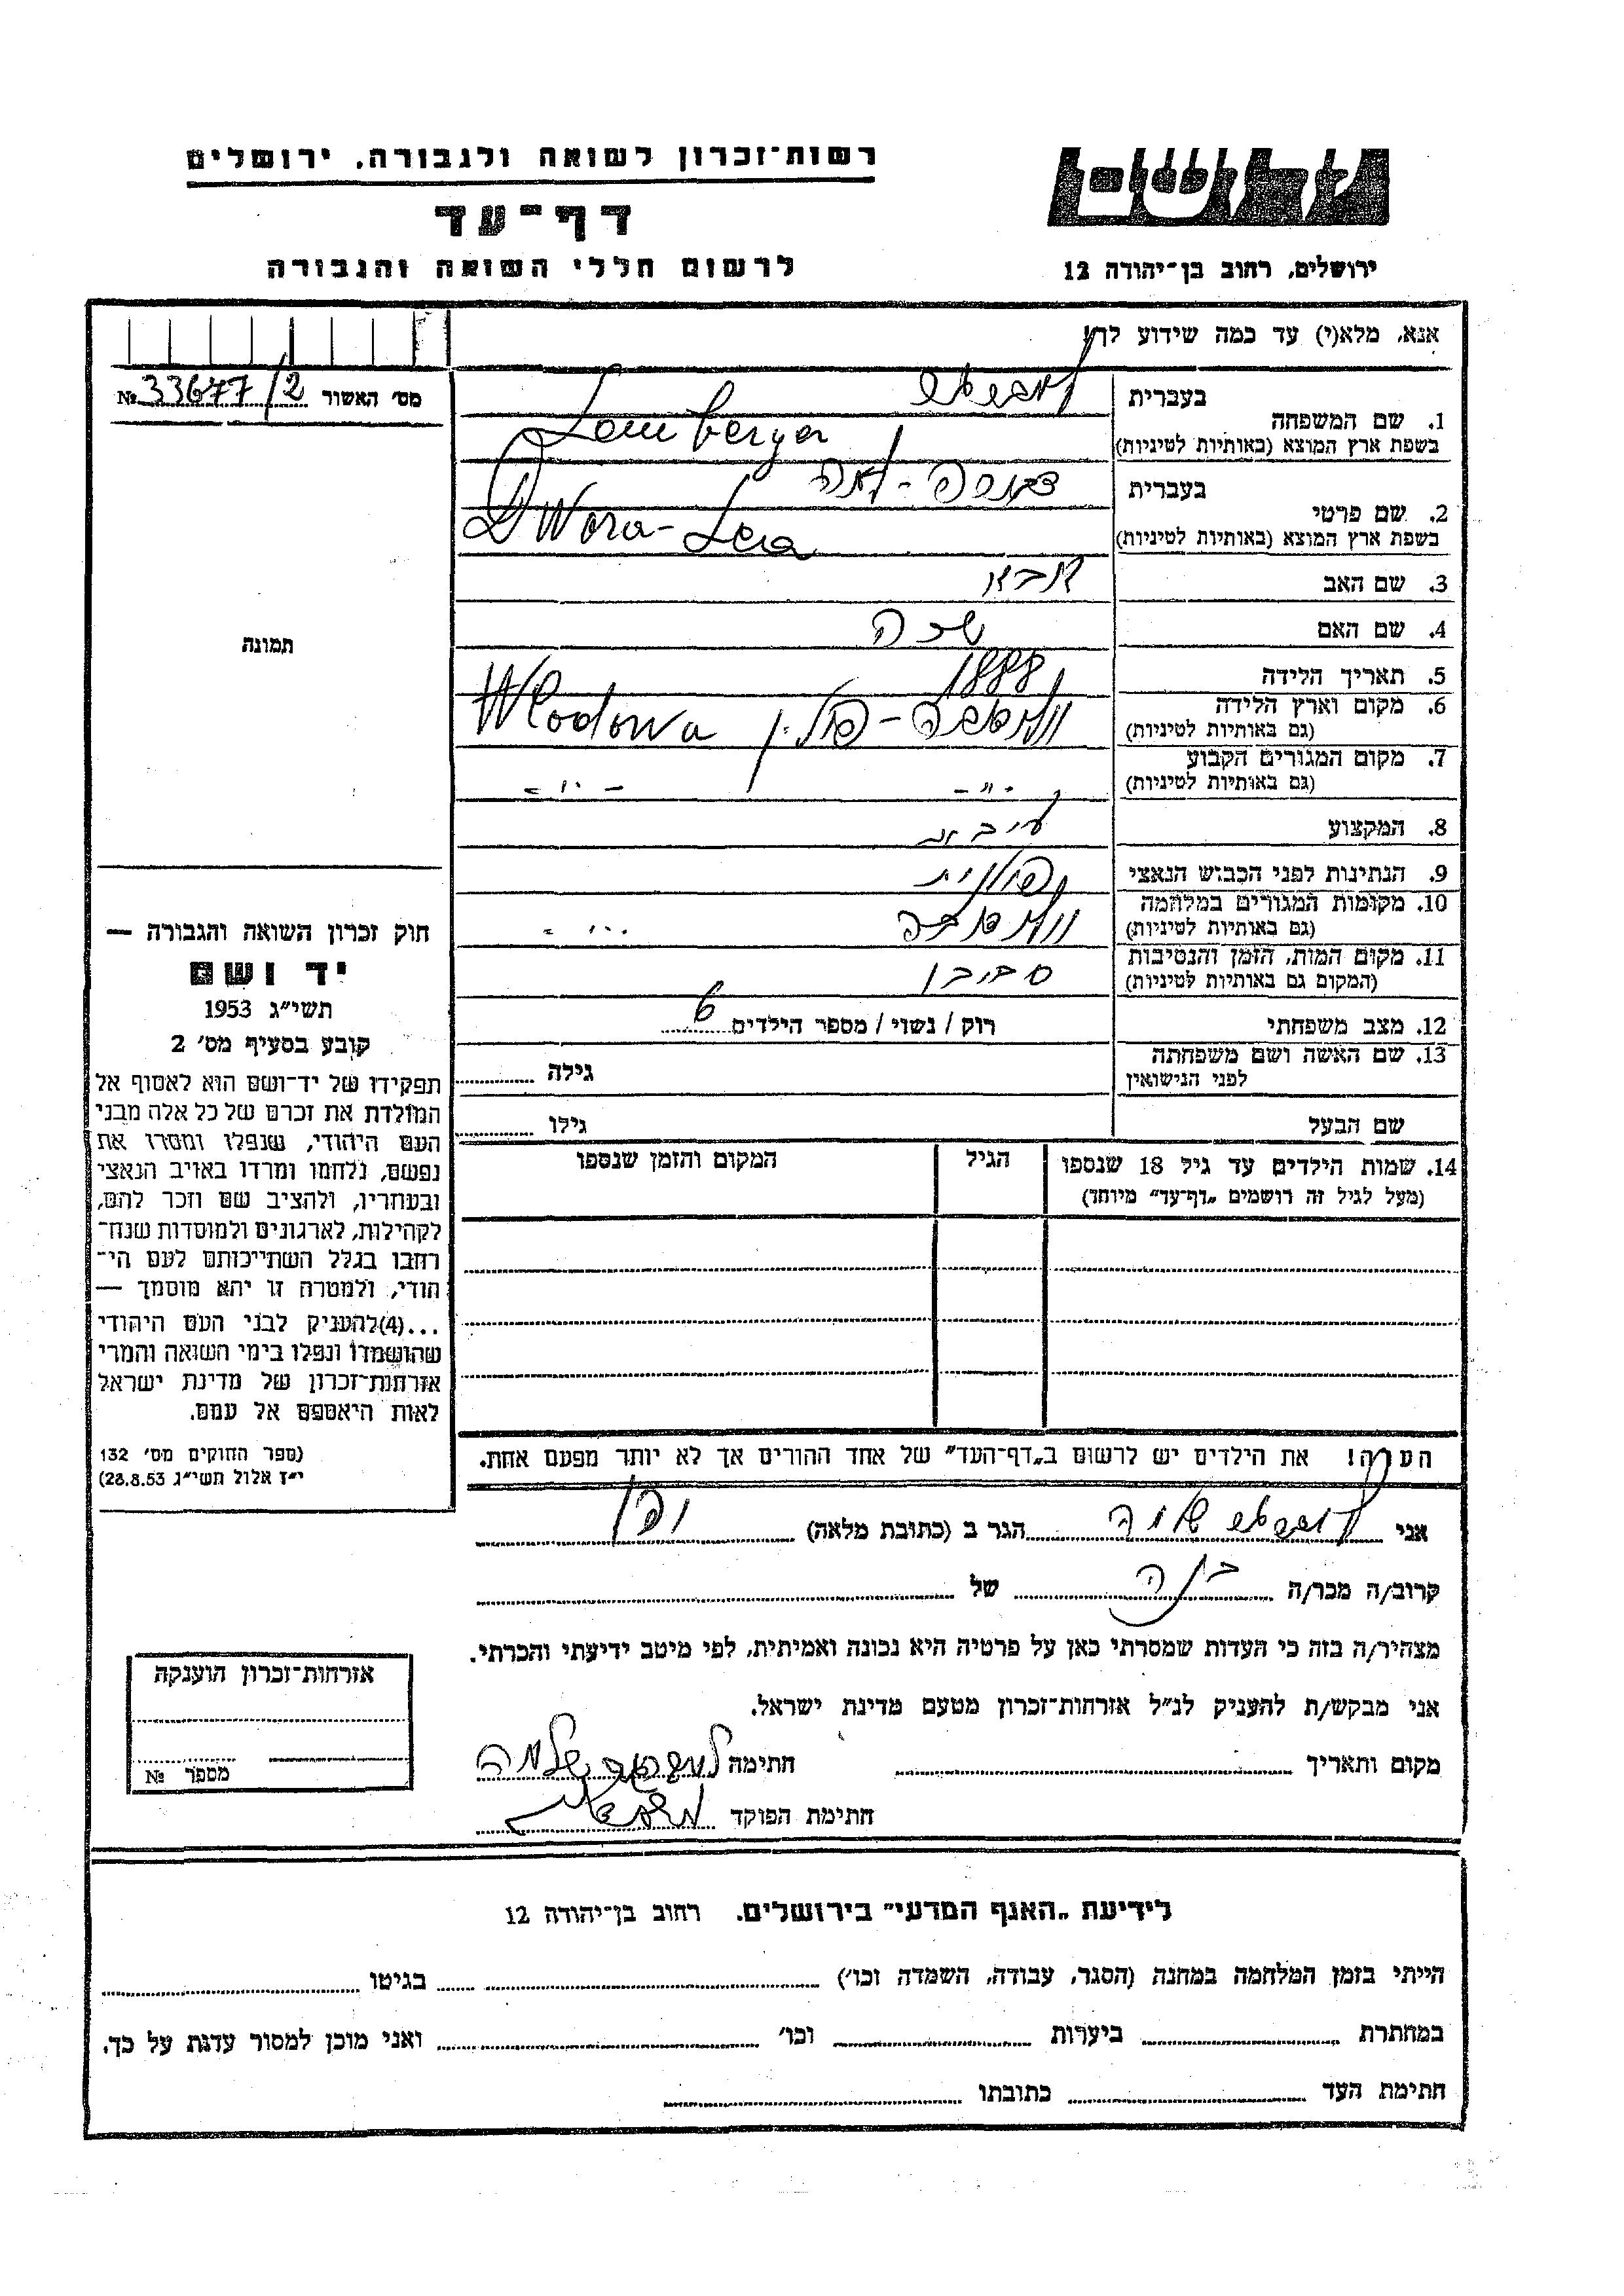 רשות־זכרון לשואה ולגבורה. ירושלים
דף־עד
לרשום חללי השואה והגבורה
ידושם
ירושלים, רחוב בן־יהודה 12
אנא, מלא(י) עד כמה שידוע לך!
מס׳ האשור № 33677/2
בעברית
1. שם המשפחה
בשפת ארץ המוצא (באותיות לטיניות) Lemberger
בעברית דבורה-לאה
2. שם פרטי
בשפת ארץ המוצא (באותיות לטיניות) Dwora-Lea
3. שם האב אבא
4. שם האם
5. תאריך הלידה 1888
6. מקום וארץ הלידה
(גם באותיות לטיניות) ולודבה-פולין Wlodowa
7. מקום המגורים הקבוע
(גם באותיות לטיניות) -"- -"-
8. המקצוע
9. הנתינות לפני הכבוש הנאצי פולנית
10. מקומות המגורים במלחמה
(גם באותיות לטיניות) ולודבה -"-
11. מקום המות, הזמן והנסיבות
(המקום גם באותיות לטיניות) סביבור
12. מצב משפחתי רוק / נשוי / מספר הילדים 6
13. שם האשה ושם משפחתה
לפני הנישואין גילה
שם הבעל גילו
14. שמות הילדים עד גיל 18 שנספו הגיל המקום והזמן שנספו
(מעל לגיל זה רושמים „דף־עד״ מיוחד)
הערה! את הילדים יש לרשום ב„דף־העד״ של אחד ההורים אך לא יותר מפעם אחת.
תמונה
חוק זכרון השואה והגבורה —
יד ושם
תשי״ג 1953
קובע בסעיף מס׳ 2
תפקידו של יד־ושם הוא לאסוף אל
המולדת את זכרם של כל אלה מבני
העם היהודי, שנפלו ומסרו את
נפשם, נלחמו ומרדו באויב הנאצי
ובעוזריו, ולהציב שם וזכר להם,
לקהילות, לארגונים ולמוסדות שנח־
רחבו בגלל השתייכותם לעם הי־
הודי, ולמטרה זו יהא מוסמך —
...(4)להעניק לבני העם היהודי
שהושמדו ונפלו בימי השואה והמרי
אזרחות־זכרון של מדינת ישראל
לאות היאספם אל עמם.
(ספר החוקים מס׳ 132
י״ז אלול תשי״ג 28.8.53)
אני הגר ב (כתובת מלאה)
קרוב/ה מכר/ה של
מצהיר/ה בזה כי העדות שמסרתי כאן על פרטיה היא נכונה ואמיתית, לפי מיטב ידיעתי והכרתי.
אני מבקש/ת להעניק לנ״ל אזרחות־זכרון מטעם מדינת ישראל.
מקום ותאריך חתימה
חתימת הפוקד
אזרחות־זכרון הוענקה
מספר №
לידיעת „האגף המדעי״ בירושלים. רחוב בן־יהודה 12
הייתי בזמן המלחמה במחנה (הסגר, עבודה, השמדה וכו׳) בגיטו
במחתרת ביערות וכו׳ ואני מוכן למסור עדות על כך.
חתימת העד כתובתו